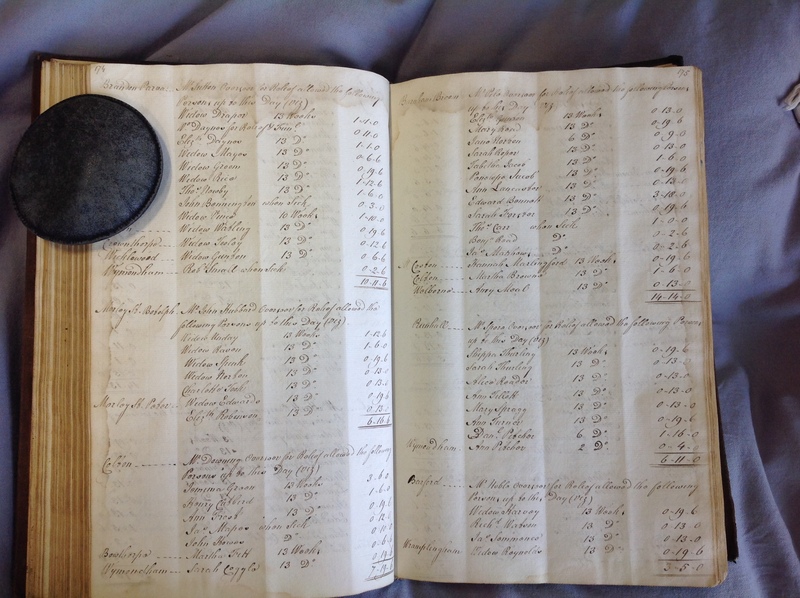 174
Brandon Parva Mr Overseer for Relief allowed the following
Persons up to this Day (Viz)
Widow Draper 13 Weeks 1-1-0
Mr Daynes for Relief & 0-11-0
Elizth Daynes 13 Do 1-1-0
Widow Mayes 13 Do 0-6-6
Widow Green 13 Do 0-19-6
Widow 13 Do 1-12-6
Thos Newby 13 Do 1-6-0
John Bonnington when Sick 0-3-0
Widow 10 Weeks 1-10-0
Widow 13 Do 0-19-6
Crownthorpe Widow 13 Do 0-12-6
Wicklewood Widow Gunton 13 Do 0-6-6
Wymondham Robt when Sick 0-2-6
10-11-6
Morley St Botolph Mr John Husband Overseer for Relief allowed the
following Persons up to this Day (Viz)
Widow 13 Weeks 1-12-6
Widow 13 Do 1-6-0
Widow Spink 13 Do 0-19-6
Widow Norton 13 Do 0-13-0
13 Do 0-13-0
Morley St Peter Widow Edwards 13 Do 0-19-6
Elizth Robinson 13 Do 0-13-0
6-16-6
Colton Mr Downing Overseer for Relief allowed the following
Persons up to this Day (Viz)
Green 13 Weeks
13 Do 1-6-0
Ann 13 Do 0-19-6
Jas when Sick
John Howes Do
Bowthorpe Martha 13 Weeks
Wymondham Sarah 13 Do
7-19-6
175
Barnham Broom Mr Overseer for Relief allowed the following Persons
up to this Day Viz
Elizth 13 Weeks 0-13-0
Mary Rand 13 Do 0-19-6
Jane Norton 6 Do 0-9-0
Sarah 13 Do 0-13-0
Tabitha 13 Do 1-6-0
Jacob 13 Do 0-19-6
Ann Lancaster 13 Do 0-13-0
Edward Bennett 13 Do 3-18-0
Sarah 13 Do 0-19-6
Thos Carr when Sick 1-0-0
Benj Rand Do 0-2-6
Jas Matthew Do 0-2-6
Coston Hannah Martingford 13 Weeks 0-19-6
Colton Martha Browne 13 Do 1-6-0
Welborne Amy 13 Do 0-13-0
14-14-0
Runhall Mr Overseer for Relief allowed the following Persons
up to this Day (Viz)
Thurling 13 Weeks 0-19-6
Sarah Thurling 13 Do 0-13-0
Alice 13 Do 0-19-6
Ann 13 Do 0-13-0
Mary Spragg 13 Do 0-13-0
Ann Turner 13 Do 0-19-6
Danl Pitcher 6 Do 1-16-0
Wymondham Ann Pitcher 2 Do 0-4-0
6-11-0
Barford Mr Noble Overseer for Relief allowed the following
Persons up to this Day (Viz)
Widow Harvey 13 Weeks 0-19-6
Richd Watson 13 Do 0-13-0
Jas Sommonce 13 Do 0-13-0
Wramplingham Widow Reynolds 13 Do 0-19-6
3-5-0